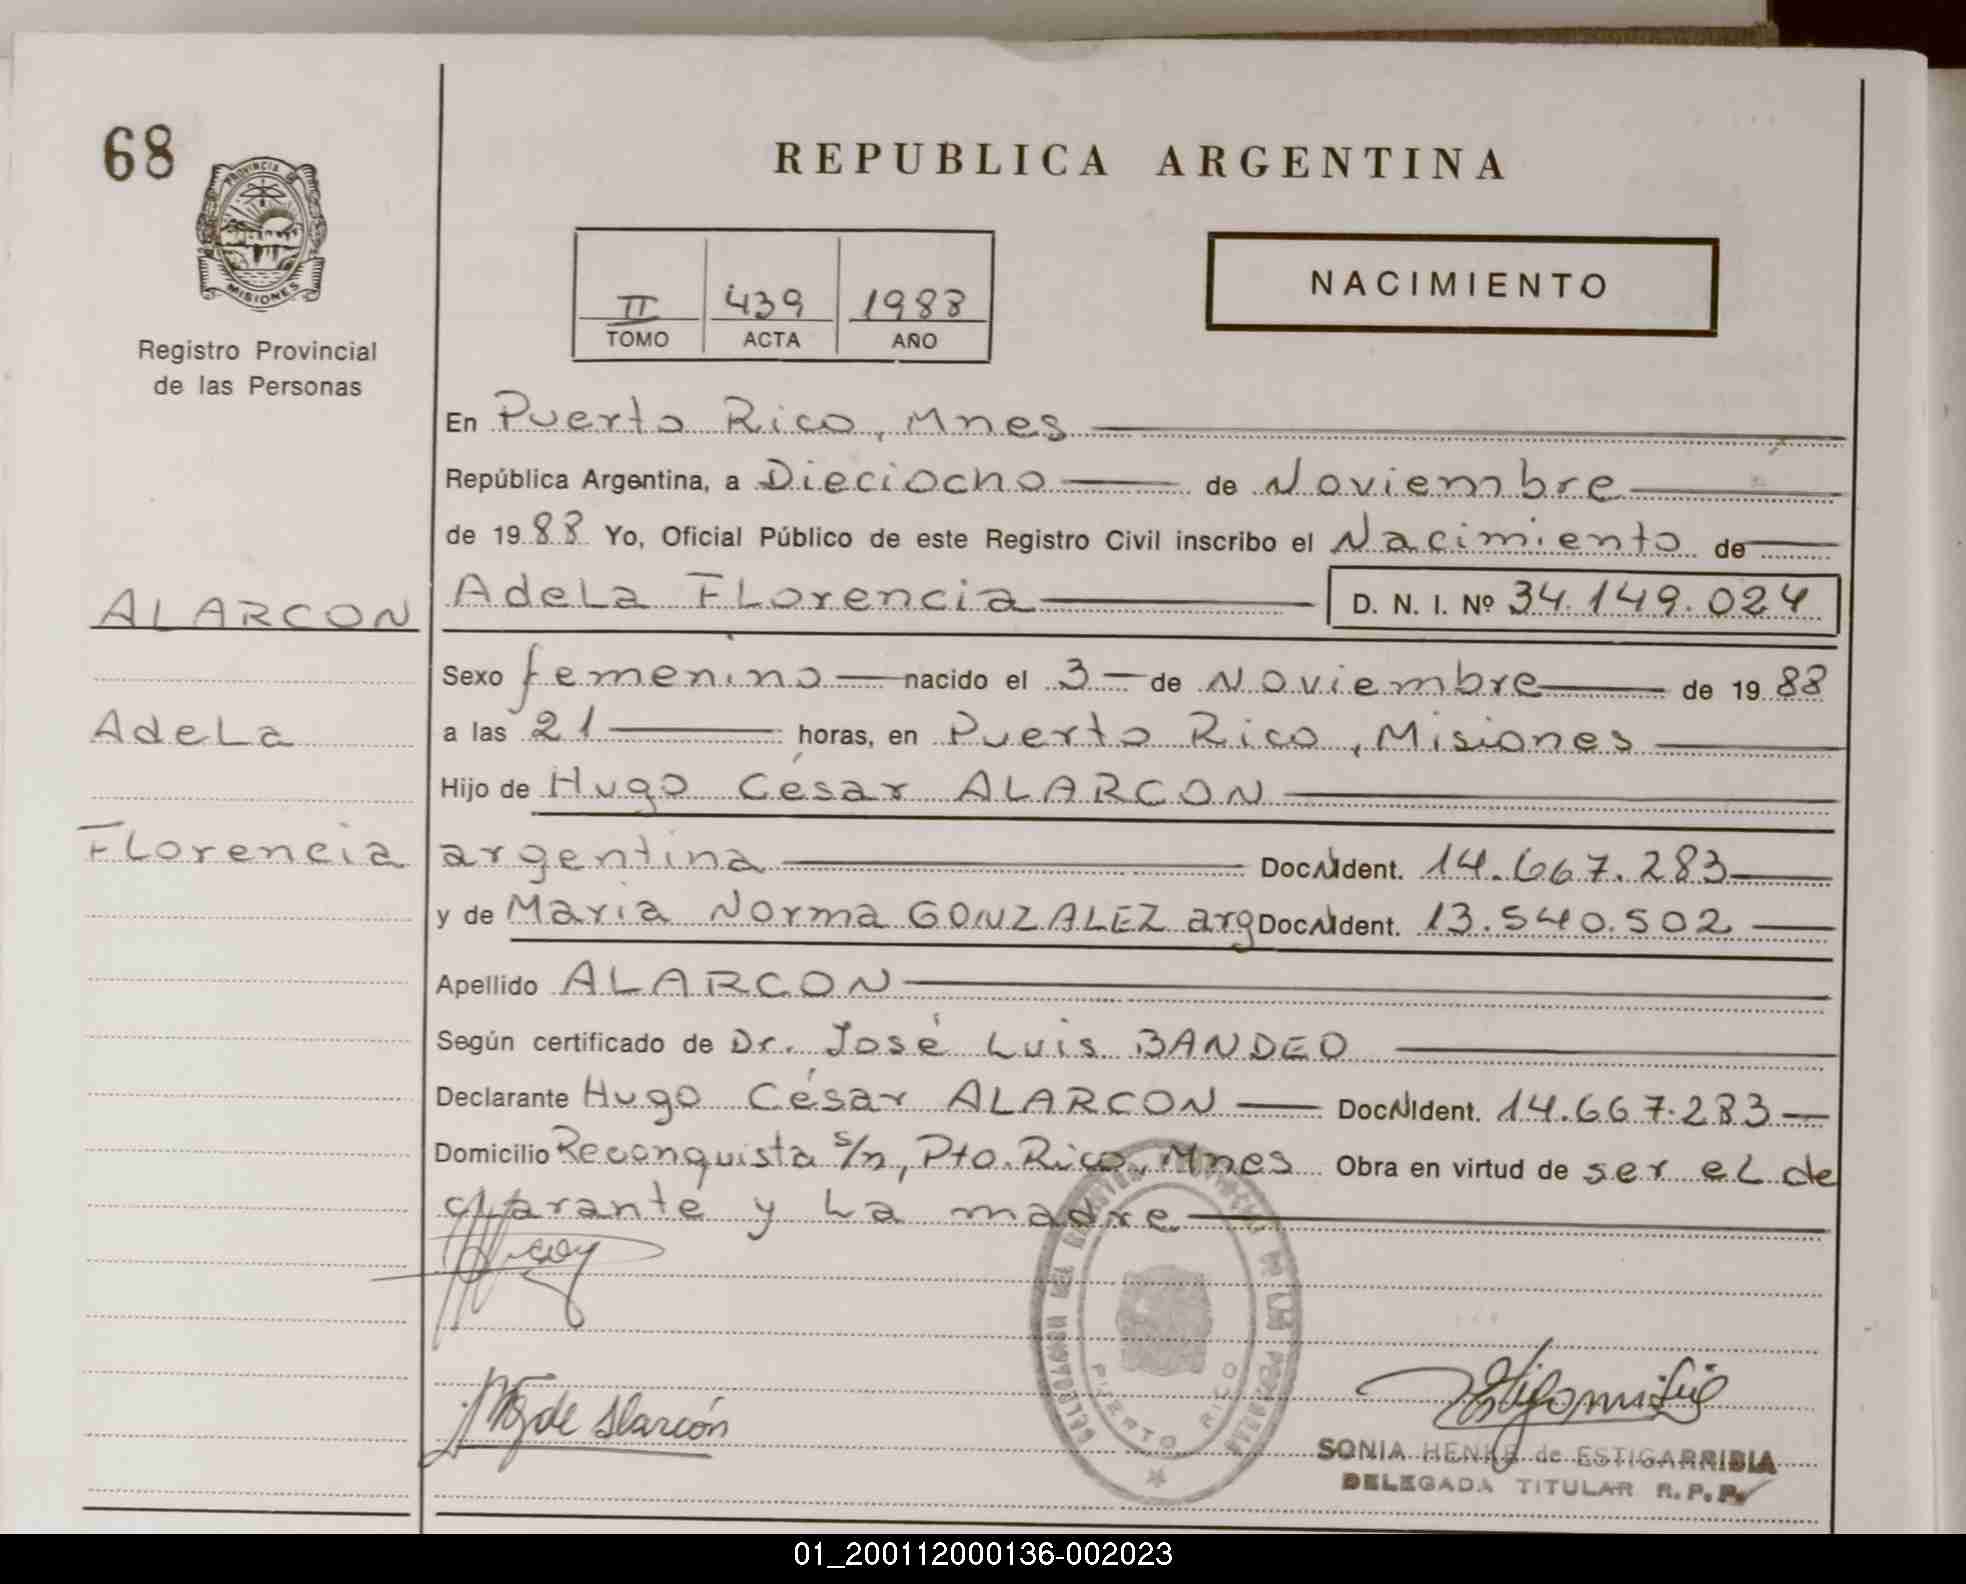 68
PROVINCIA DE
MISIONES
Registro Provincial
de las Personas
REPUBLICA ARGENTINA
II 439 1988
TOMO ACTA AÑO
NACIMIENTO
En Puerto Rico, Mnes
República Argentina, a Dieciocho de Noviembre
de 1988 Yo, Oficial Público de este Registro Civil inscribo el Nacimiento de
ALARCON
Adela Florencia D. N. I. Nº 34.149.024
Sexo femenino nacido el 3 de Noviembre de 1988
Adela
a las 21 horas, en Puerto Rico, Misiones
Hijo de Hugo César ALARCON
Florencia
argentina Doc.N.Ident. 14.667.283
y de Maria Norma GONZALEZ arg Doc.N.Ident. 13.540.502
Apellido ALARCON
Según certificado de Dr. José Luis BANDEO
Declarante Hugo César ALARCON Doc.N.Ident. 14.667.283
Domicilio Reconquista s/n, Pto. Rico, Mnes Obra en virtud de ser el de
clarante y La madre
de Alarcón
PUERTO RICO
SONIA HENKE de ESTIGARRIBIA
DELEGADA TITULAR R.P.P.
01_200112000136-002023